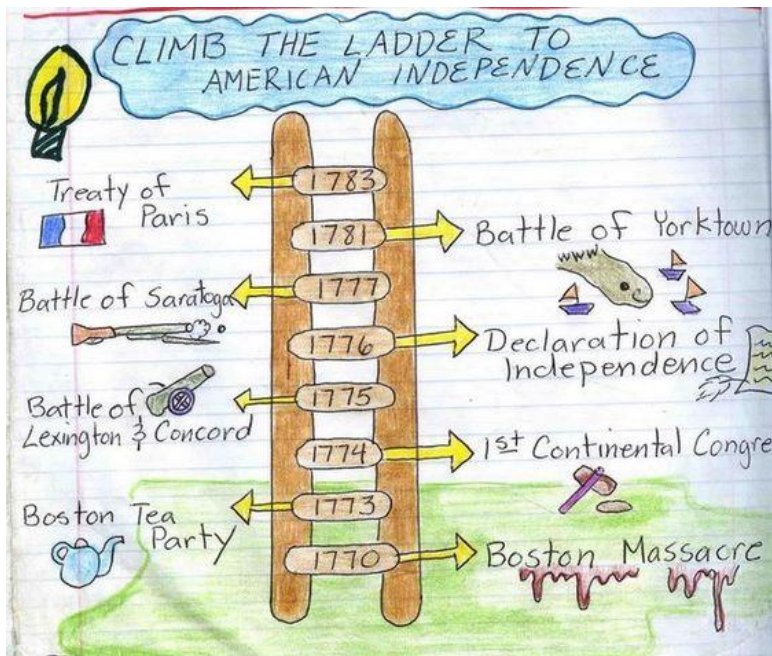 CLIMB THE LADDER TO
AMERICAN INDEPENDENCE
1783
Treaty of
Paris
1781
Battle of Yorktown
1777
Battle of Saratoga
1776
Declaration of
Independence
1775
Battle of
Lexington & Concord
1774
1st Continental Congre
1773
Boston Tea
Party
1770
Boston Massacre